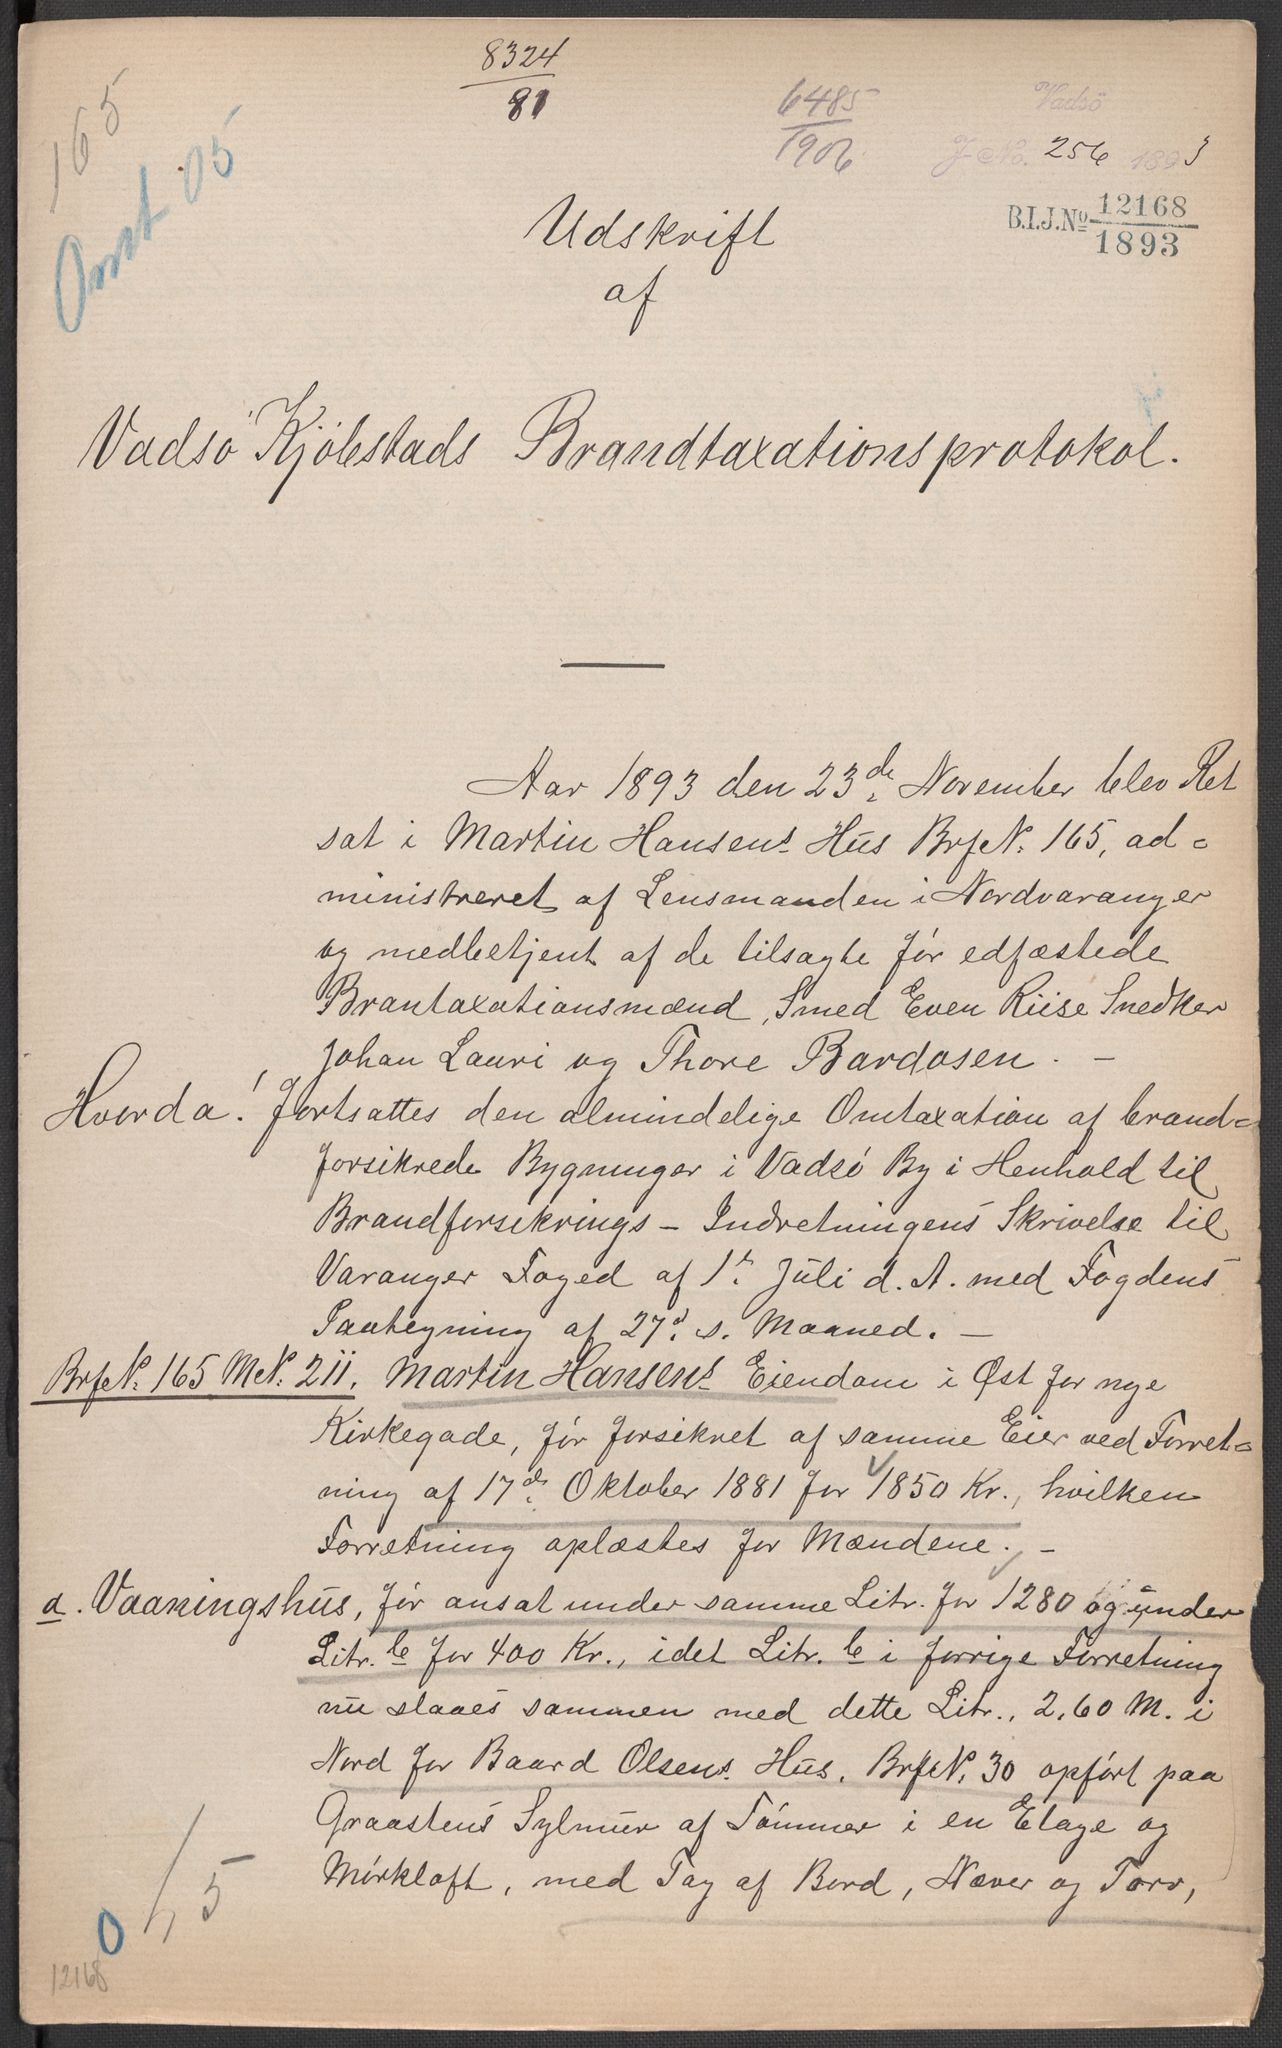 8324
81
6485
1906
Vadsö
J. No. 256 1893
B.I.J.No 12168
1893
165
Omt 05
Udskrift
af
Vadsö Kjöbstads Brandtaxationsprotokol.
Aar 1893 den 23de November blev Ret
sat i Martin Hansens Hus BrfN. 165, ad=
ministreret af Lensmanden i Nordvaranger
og medbetjent af de tilsagte för edfæstede
Brantaxationsmænd, Smed Even Riise Snedker
Johan Lauri og Thore Bardosen. –
Hvorda! fortsattes den almindelige Omtaxation af brand=
forsikrede Bygninger i Vadsö By i Henhold til
Brandforsikrings – Indretningens Skrivelse til
Varanger Foged af 1ste Juli d. A. med Fogdens
Paategning af 27d. s. Maaned. –
BrfeN. 165 MN. 211. Martin Hansens Eiendom i Øst for nye
Kirkegade, för forsikret af samme Eier ved Forret=
ning af 17de Oktober 1881 for 1850 Kr., hvilken
Forretning oplæstes for Mændene. –
a. Vaaningshus, för ansat under samme Litr. for 1280 og under
Litr. b for 400 Kr., idet Litr. b i forrige Forretning
nu slaaes sammen med dette Litr., 2,60 M. i
Nord for Baard Olsens Hus, BrfeN. 30 opfört paa
Graastens Sylmur af Tömmer i en Etage og
Mörkloft, med Tag af Bord, Næver og Torv,
0 / 5
12168